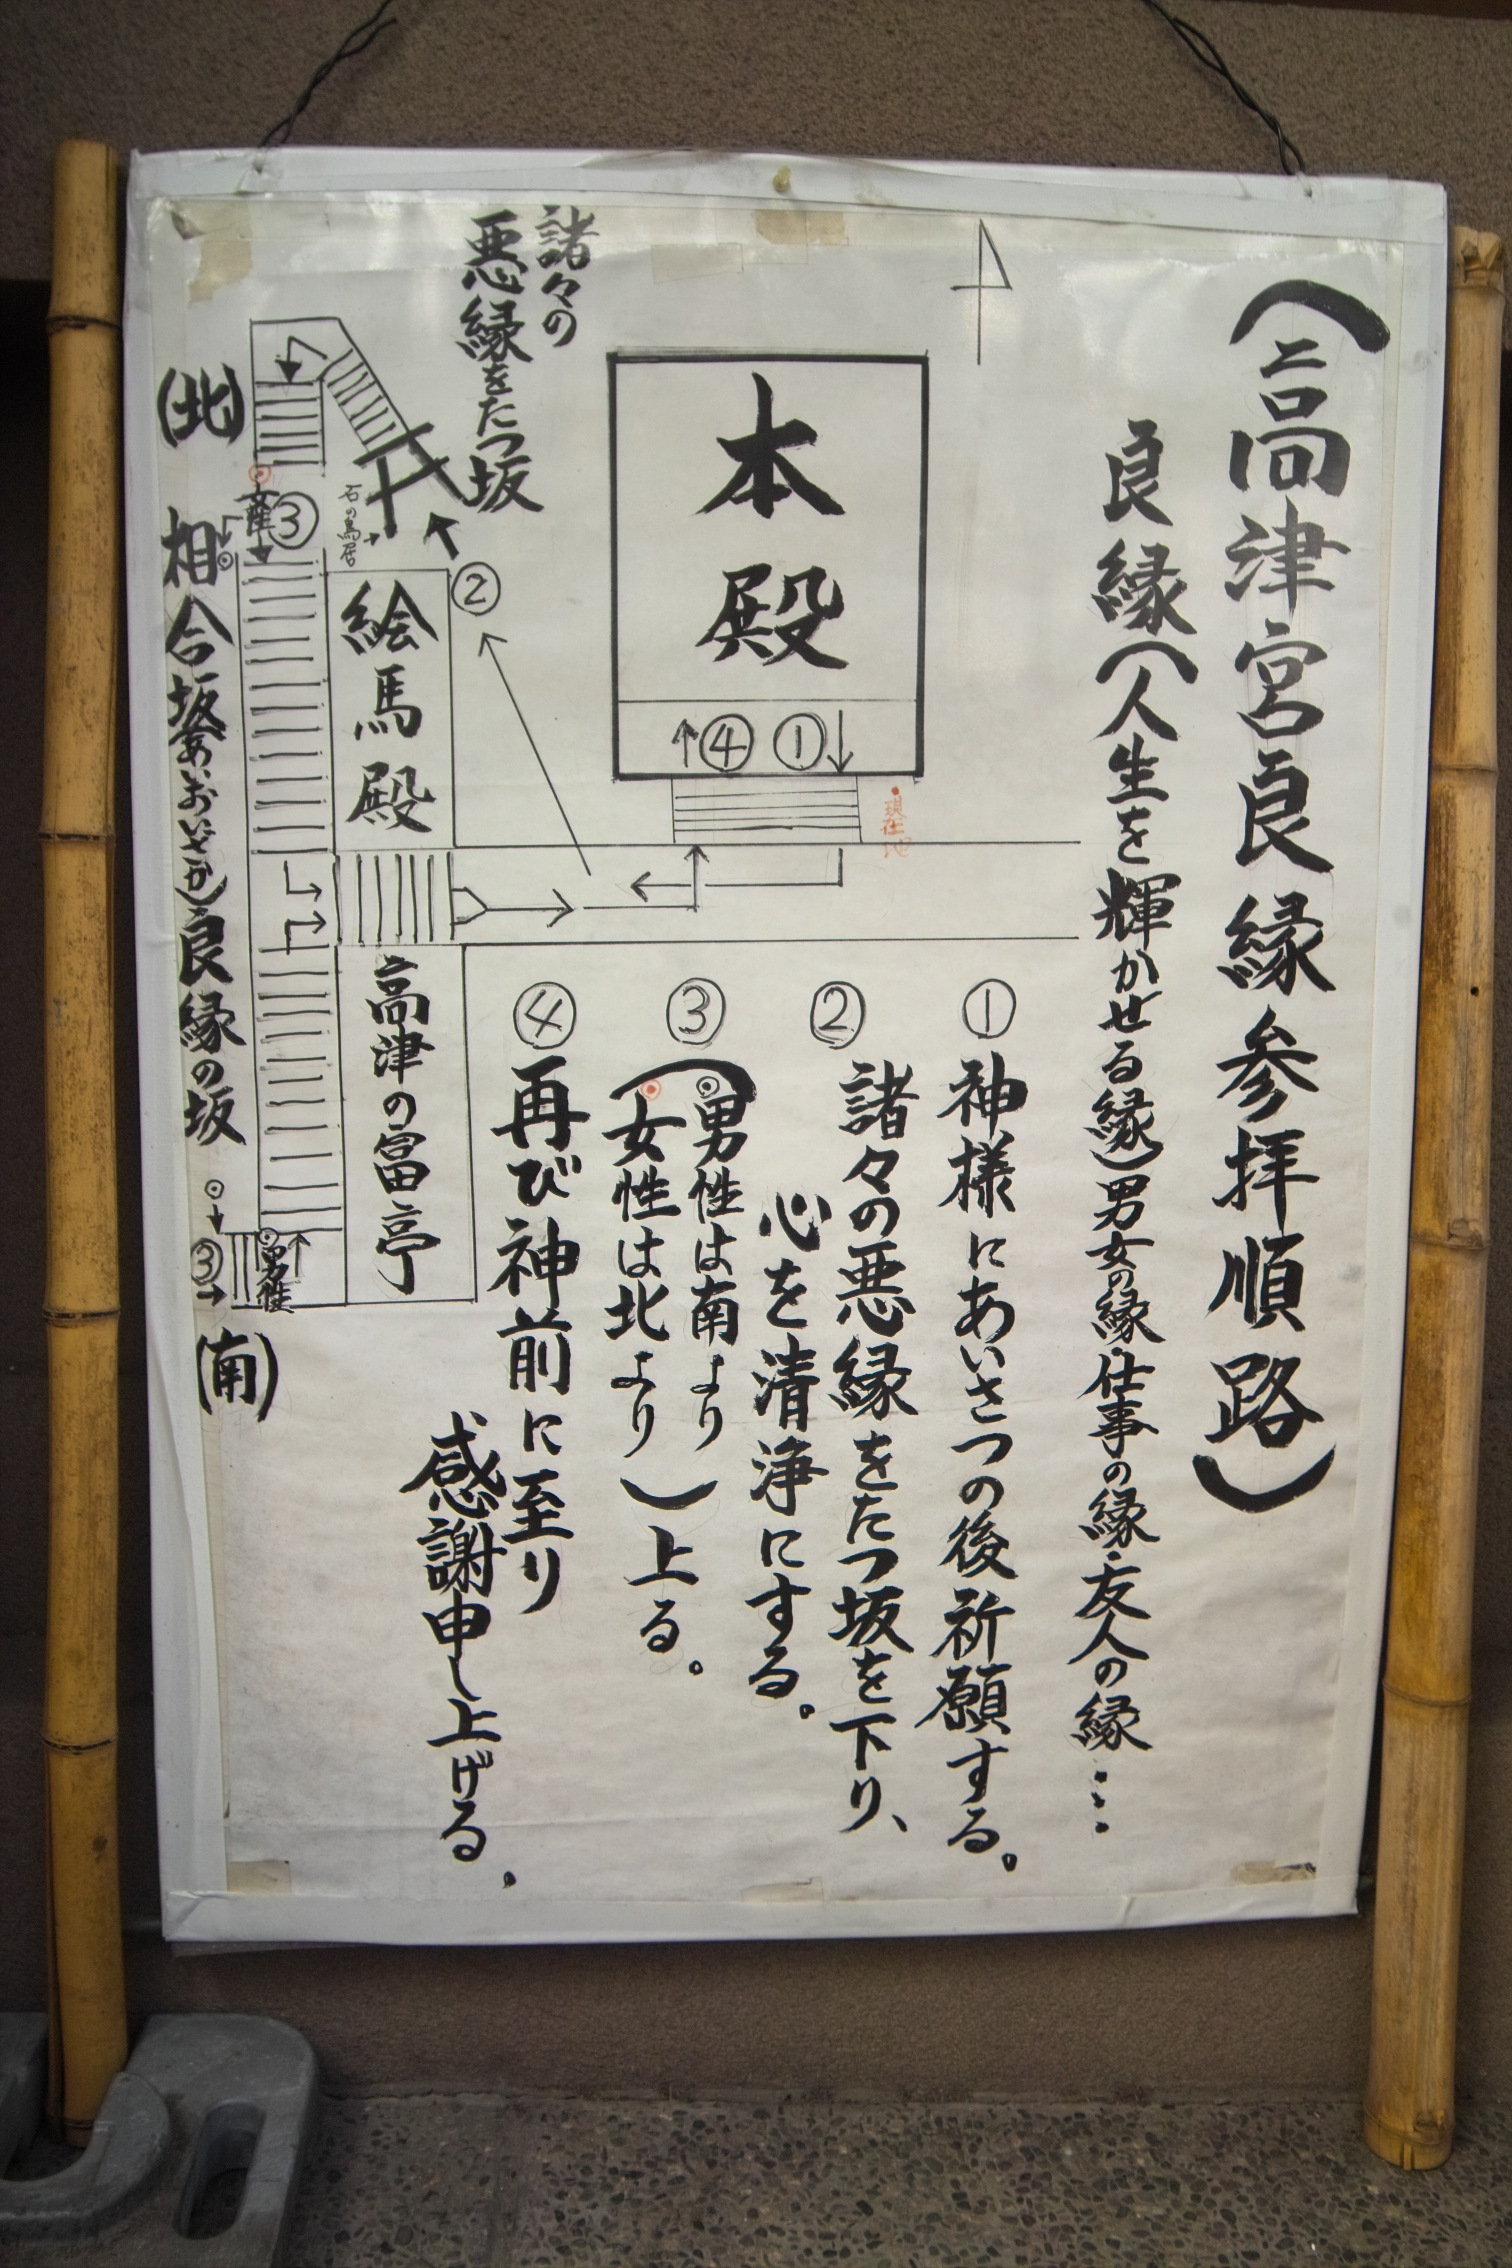 （高津宮良縁参拝順路）
良縁（人生を輝かせる縁）男女の縁・仕事の縁・友人の縁…
本殿
④
①
現在地
諸々の
悪縁をたつ坂
②
石の鳥居
絵馬殿
高津の富亭
（北）
女性
③
相合坂（あいおいざか）良縁の坂
③
男性
（南）
①神様にあいさつの後祈願する。
②諸々の悪縁をたつ坂を下り、
心を清浄にする。
③（男性は南より
女性は北より）上る。
④再び神前に至り
感謝申し上げる。